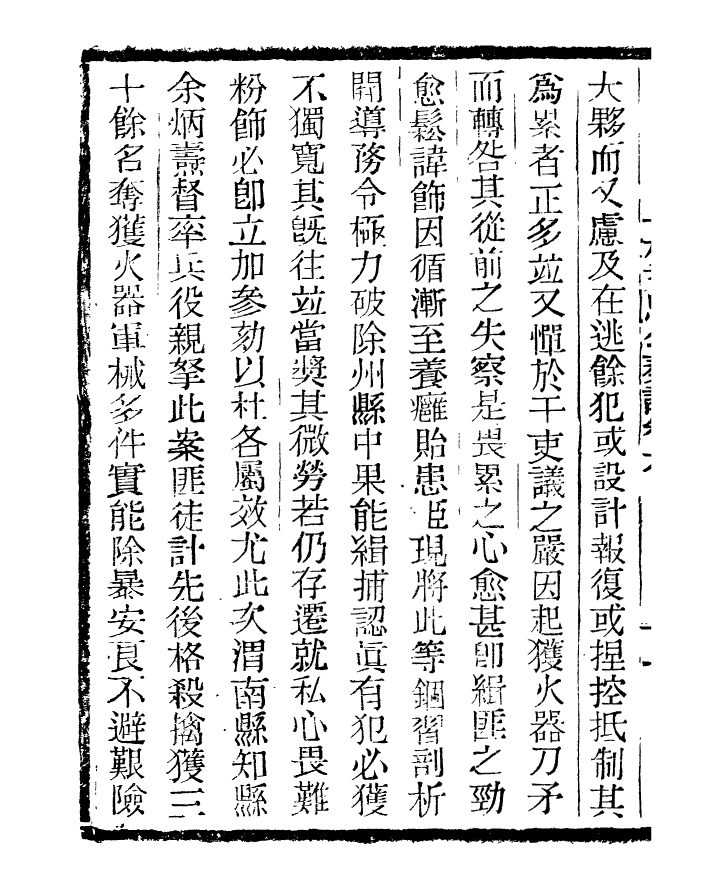 大夥而又慮及在逃餘犯或設計報復或捏控抵制其
爲累者正多並又憚於干吏議之嚴因起獲火器刀矛
而轉咎其從前之失察是畏累之心愈甚卽緝匪之勁
愈鬆諱飾因循漸至養癰貽患臣現將此等錮習剖析
開導務令極力破除州縣中果能緝捕認眞有犯必獲
不獨寬其旣往並當奬其微勞若仍存遷就私心畏難
粉飾必卽立加參劾以杜各屬效尤此次渭南縣知縣
余炳燾督率兵役親拏此案匪徒計先後格殺擒獲三
十餘名奪獲火器軍械多件實能除暴安良不避艱險